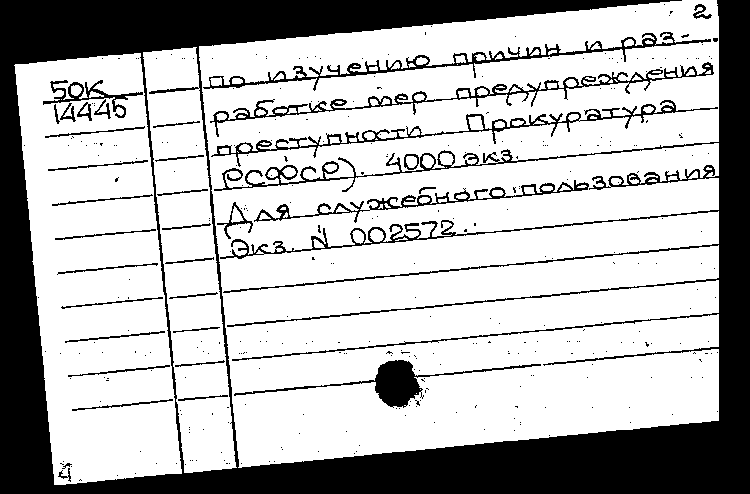 2
50К
14445
по изучению причин и раз-
работке мер предупреждения
преступности Прокуратура
РСФСР). 4000 экз.
Для служебного пользования
Экз. N 002572.